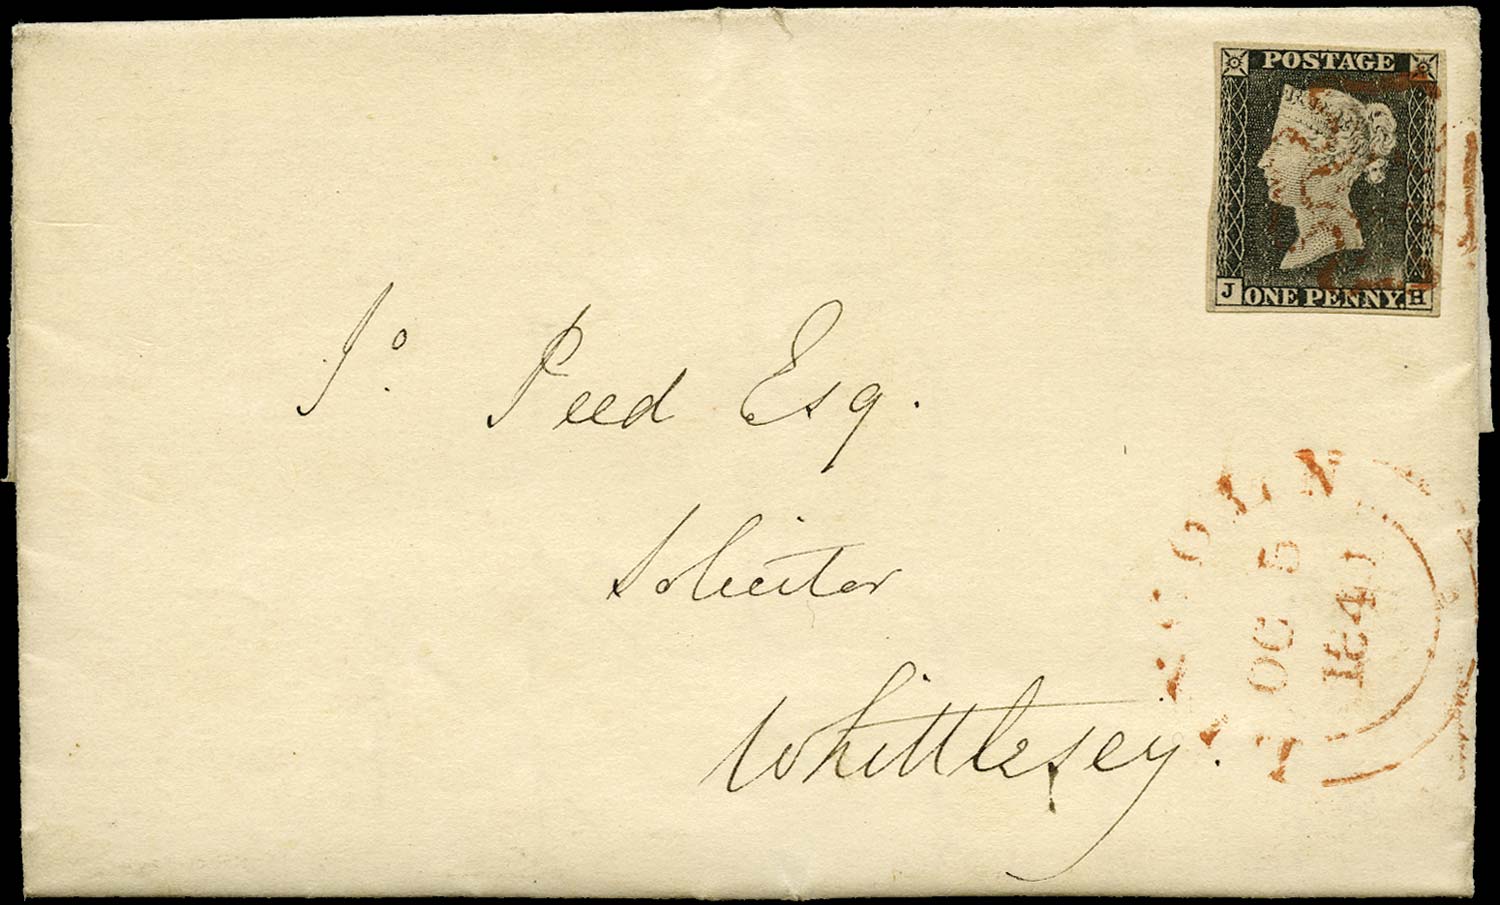 POSTAGE
J ONE PENNY. H
Jº. Peed Esq.
Solicitor
Whittlesey.
LINCOLN
OC 5
1840